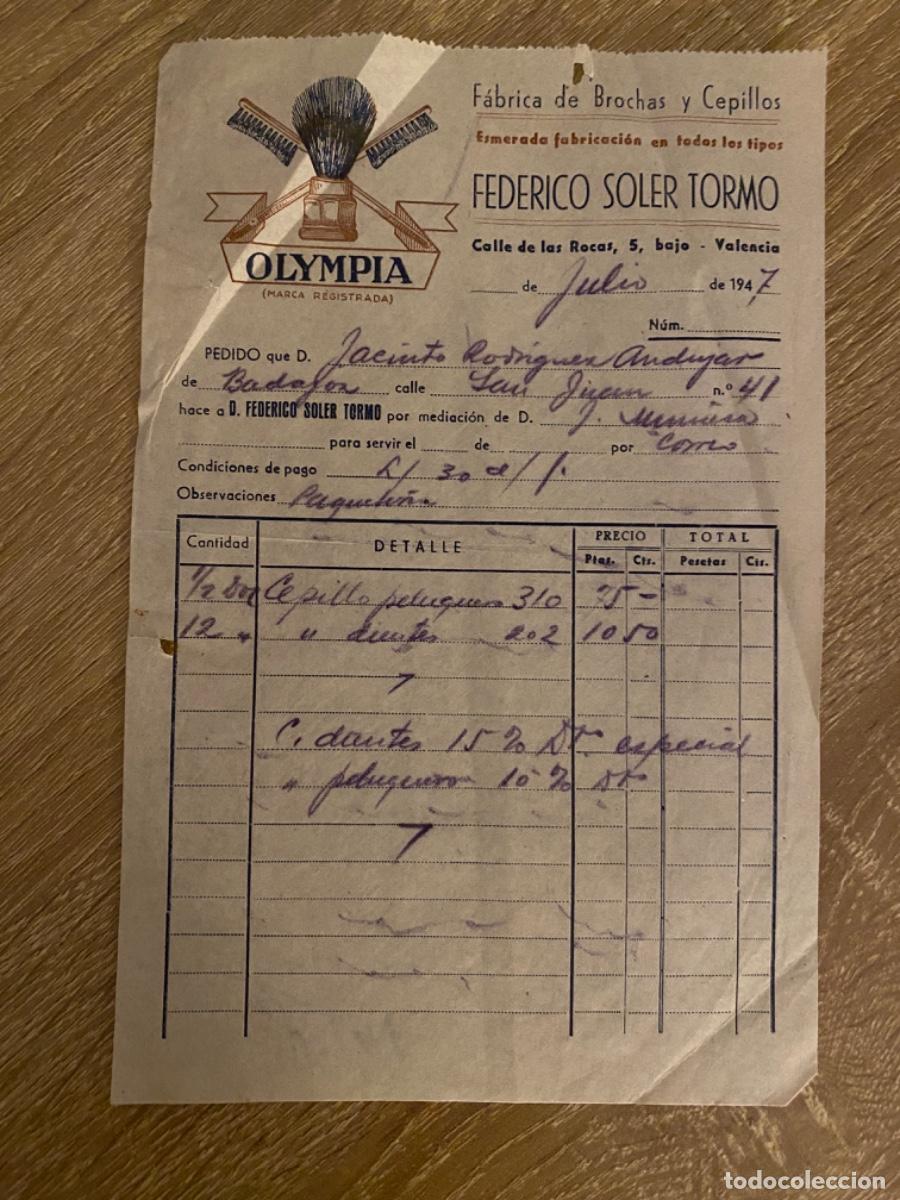 Fábrica de Brochas y Cepillos
Esmerada fabricación en todos los tipos
FEDERICO SOLER TORMO
Calle de las Rocas, 5, bajo - Valencia
OLYMPIA
(MARCA REGISTRADA)
de Julio de 1947
Núm.
PEDIDO que D. Jacinto Rodriguez Andujar
de Badajoz calle San Juan n.º 41
hace a D. FEDERICO SOLER TORMO por mediación de D. J.
para servir el de por Correo
Condiciones de pago L/ 30 d/
Observaciones
Cantidad DETALLE PRECIO TOTAL
Ptas. Cts. Pesetas Cts.
1/2 Doc Cepillo peluquero 310 75 -
12 " " dientes 202 10 50
C. dientes 15 % Dto. especial
" peluquero 10 % Dto
todocoleccion